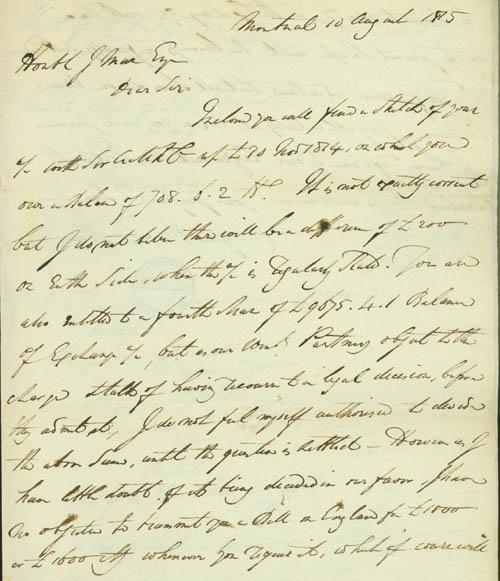 Montreal 10 August 1815
Honble J Muir Esqr
Dear Sir
Inclosed you will find a Sketch of your
a/c with Sir A. McK & Co up to 30 Novr 1814, on which you
owe a Balance of 708. 6. 2 It is not exactly correct
but I do not believe there will be a difference of £200
on Either Side, when the a/c is regularly Stated. You are
also entitled to a fourth Share of £9875. 4. 1 Balance
of Exchange a/c, but as our Partners object to the
charge & talk of having recourse to a legal decision, before
they admit it, I do not feel myself authorised to divide
the above Sum, until the question is settled — However as I
have little doubt, of its being decided in our favor, I have
no objection to transmit you a Bill on England for £1000
or £1600 Stg whenever you require it, which of course will